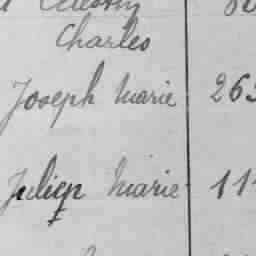 Charles
Joseph Marie 263
Julien Marie 11